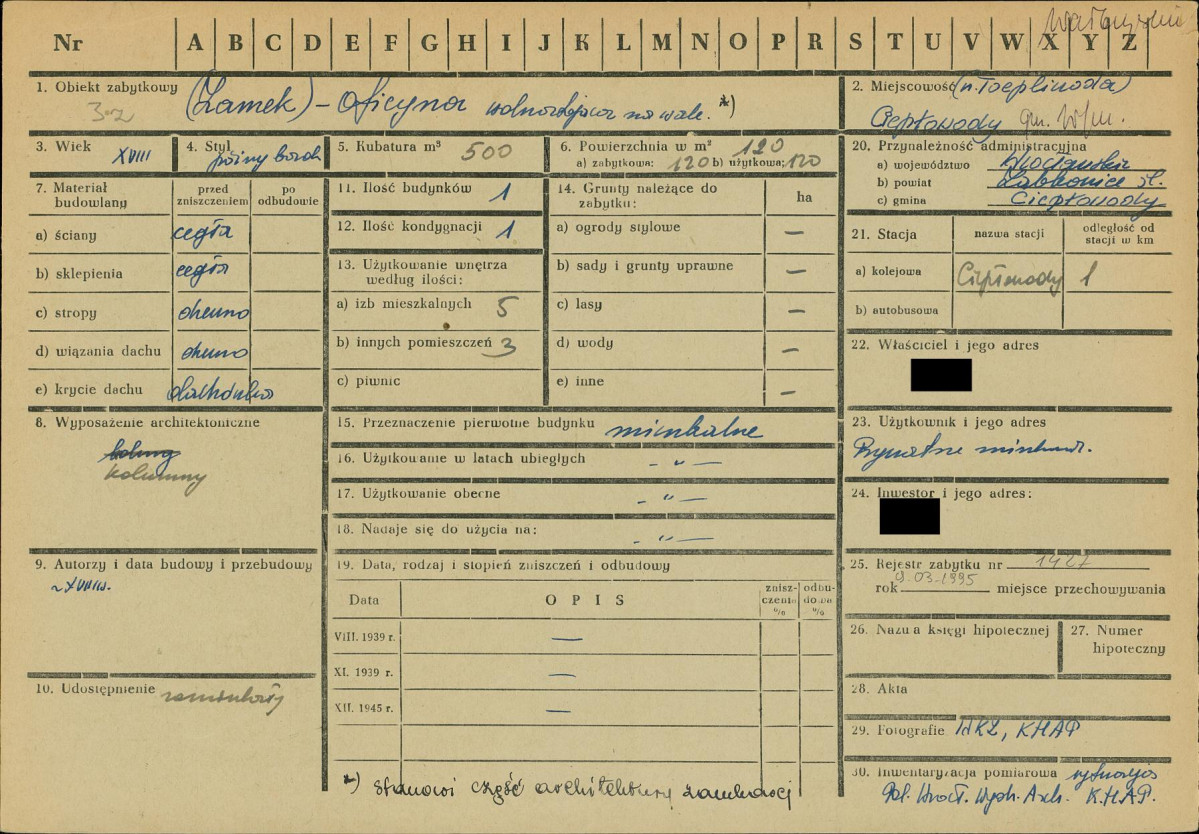 Nr A B C D E F G H I J K L M N O P R S T U V W X Y Z
1. Obiekt zabytkowy (Zamek) - Oficyna wolnostojąca na wale. *)
2. Miejscowość (n. Toeplinoda)
Ciepłowody gm. loco.
3. Wiek XVIII
4. Styl późny barok
5. Kubatura m³ 500
6. Powierzchnia w m² 120
a) zabytkowa: 120 b) użytkowa: 120
20. Przynależność administracyjna
a) województwo Wrocławskie
b) powiat Ząbkowice Śl.
c) gmina Ciepłowody
7. Materiał budowlany
przed zniszczeniem
po odbudowie
a) ściany cegła
b) sklepienia cegła
c) stropy drewno
d) wiązania dachu drewno
e) krycie dachu dachówka
8. Wyposażenie architektoniczne
kolumny
9. Autorzy i data budowy i przebudowy
~XVIIIw.
10. Udostępnienie zamieszkały
11. Ilość budynków 1
12. Ilość kondygnacji 1
13. Użytkowanie wnętrza według ilości:
a) izb mieszkalnych 5
b) innych pomieszczeń 3
c) piwnic
14. Grunty należące do zabytku:
ha
a) ogrody stylowe —
b) sady i grunty uprawne —
c) lasy —
d) wody —
e) inne —
15. Przeznaczenie pierwotne budynku mieszkalne
16. Użytkowanie w latach ubiegłych - " —
17. Użytkowanie obecne - " —
18. Nadaje się do użycia na: - " —
19. Data, rodzaj i stopień zniszczeń i odbudowy
Data
OPIS
zniszczenia %
odbudowa %
VIII. 1939 r. —
XI. 1939 r. —
XII. 1945 r. —
*) stanowi część architektury zamkowej
21. Stacja
nazwa stacji
odległość od stacji w km
a) kolejowa Ciepłowody 1
b) autobusowa
22. Właściciel i jego adres
23. Użytkownik i jego adres
Prywatne mieszk.
24. Inwestor i jego adres:
25. Rejestr zabytku nr 1427
rok 9.03.1995 miejsce przechowywania
26. Nazwa księgi hipotecznej
27. Numer hipoteczny
28. Akta
29. Fotografie WKZ, KHAP
30. Inwentaryzacja pomiarowa
Pol. Wrocł. Wydz. Arch. K.H.A.P.